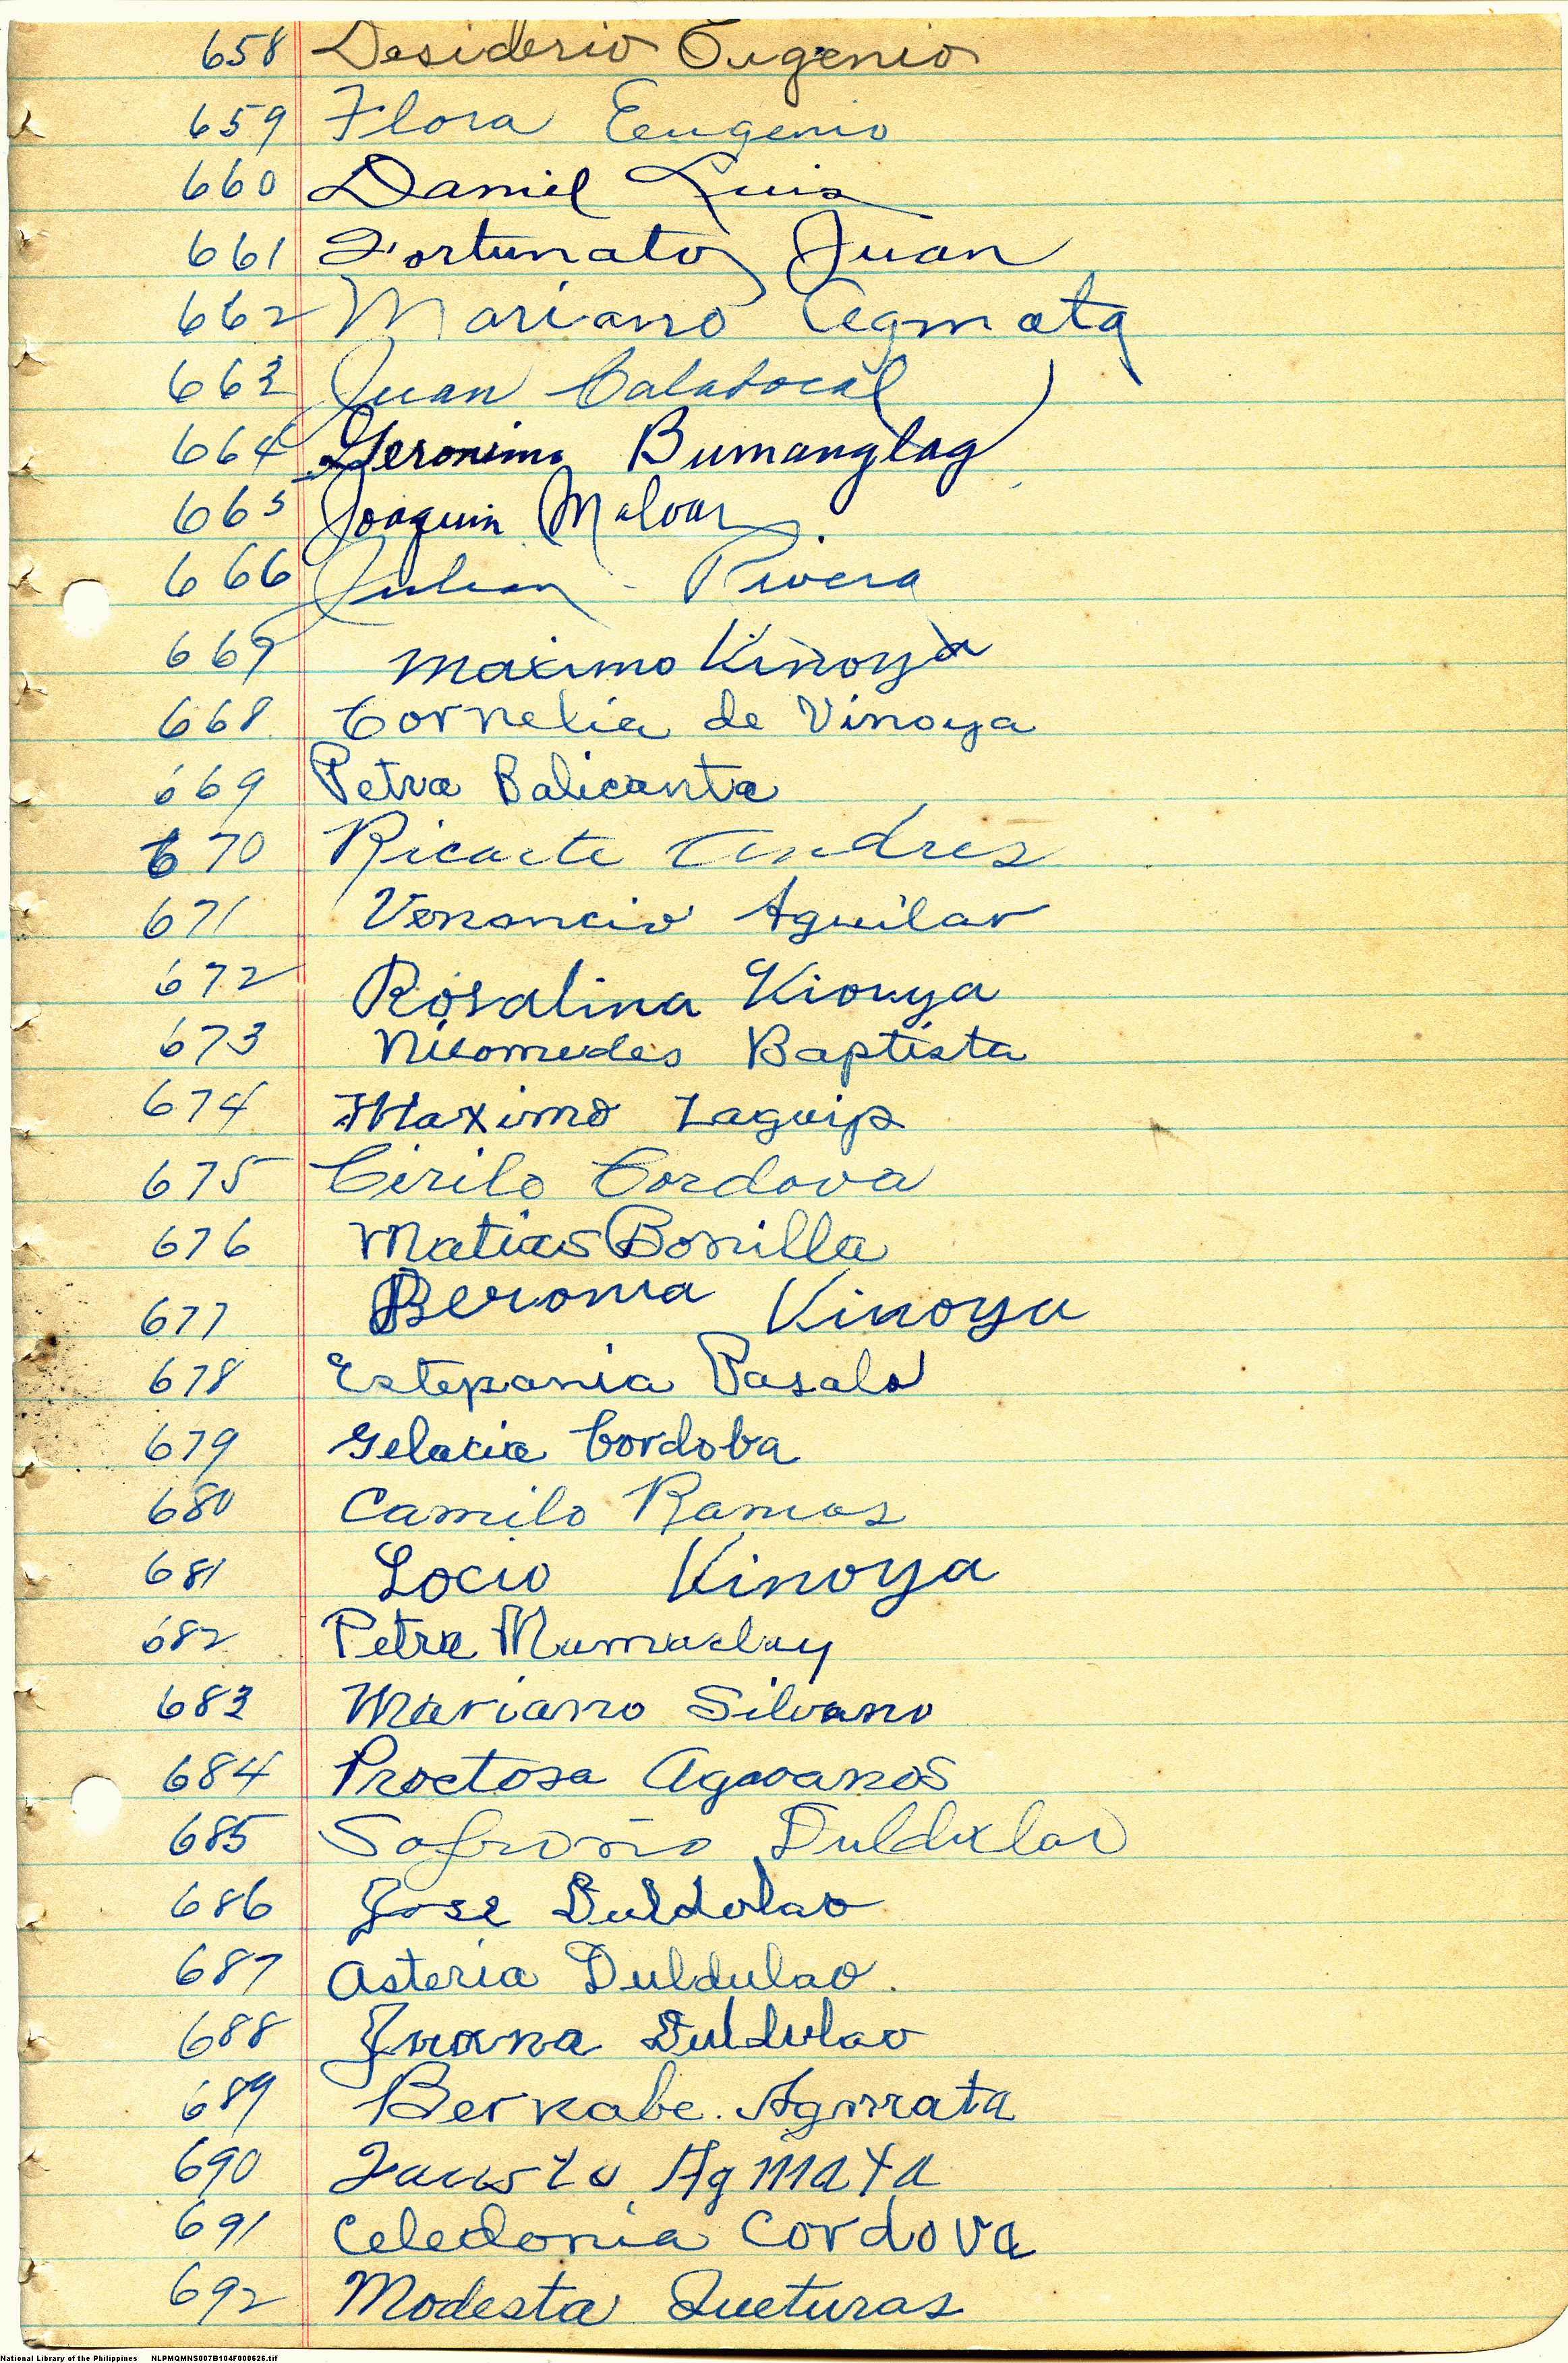 658 Desiderio Eugenio
659 Flora Eeugenio
660 Daniel Luis
661 Fortunato Juan
662 Mariano Agmata
663 Juan Calabocal
664 Geronimo Bumanglag
665 Joaquin Malvar
666 Julian - Rivera
667 Maximo Vinoya
668 Cornelia de Vinoya
669 Petra Balicanta
670 Ricarte Andres
671 Venancio Aguilar
672 Rosalina Vionya
673 Nicomedes Baptista
674 Maximo Laguip
675 Cirilo Cordova
676 Matias Bonilla
677 Beronia Vinoya
678 Estepania Pasalo
679 Gelacia Cordoba
680 Camilo Ramos
681 Locio Vinoya
682 Petra Mumaclay
683 Mariano Silvano
684 Proctosa Agaoanos
685 Sofronio Duldulao
686 Jose Duldolao
687 Asteria Duldulao.
688 Juana Duldulao
689 Bernabe. Agmata
690 Fausto Agmata
691 Celedonia Cordova
692 Modesta Queturas
National Library of the Philippines NLPMQMNS007B104F000626.tif